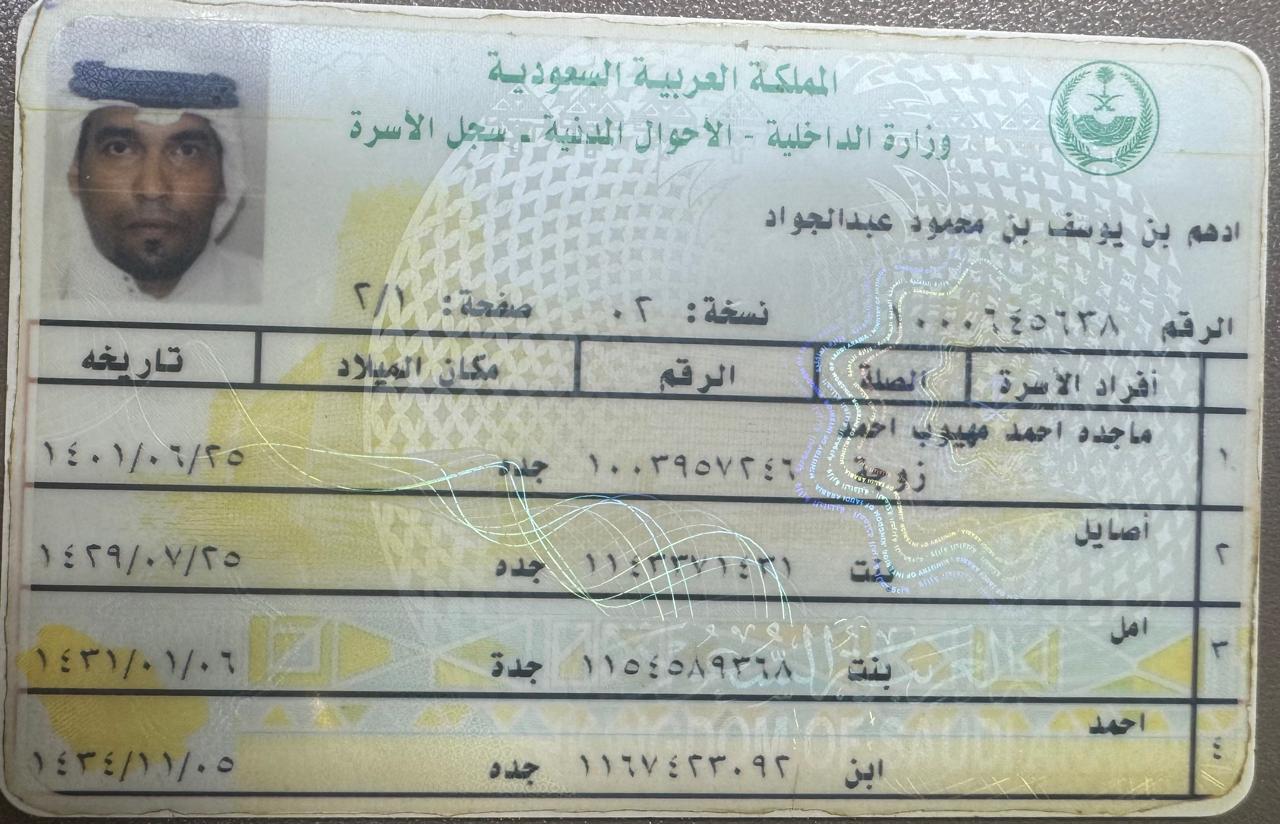 المملكة العربية السعودية
وزارة الداخلية - الأحوال المدنية - سجل الأسرة
ادهم بن يوسف بن محمود عبدالجواد
الرقم ٠٠٠٦٤٥٦٣٨ نسخة: ٠٢ صفحة: ٢/١
أفراد الأسرة الصلة الرقم مكان الميلاد تاريخه
١ ماجده احمد مهيوب احمد
زوجة ١٠٠٣٩٥٧٢٤٦ جده ١٤٠١/٠٦/٢٥
٢ أصايل
بنت ١١٤٣٣٧١٤٣١ جده ١٤٢٩/٠٧/٢٥
٣ امل
بنت ١١٥٤٥٨٩٣٦٨ جدة ١٤٣١/٠١/٠٦
٤ احمد
ابن ١١٦٧٤٢٣٠٩٢ جده ١٤٣٤/١١/٠٥